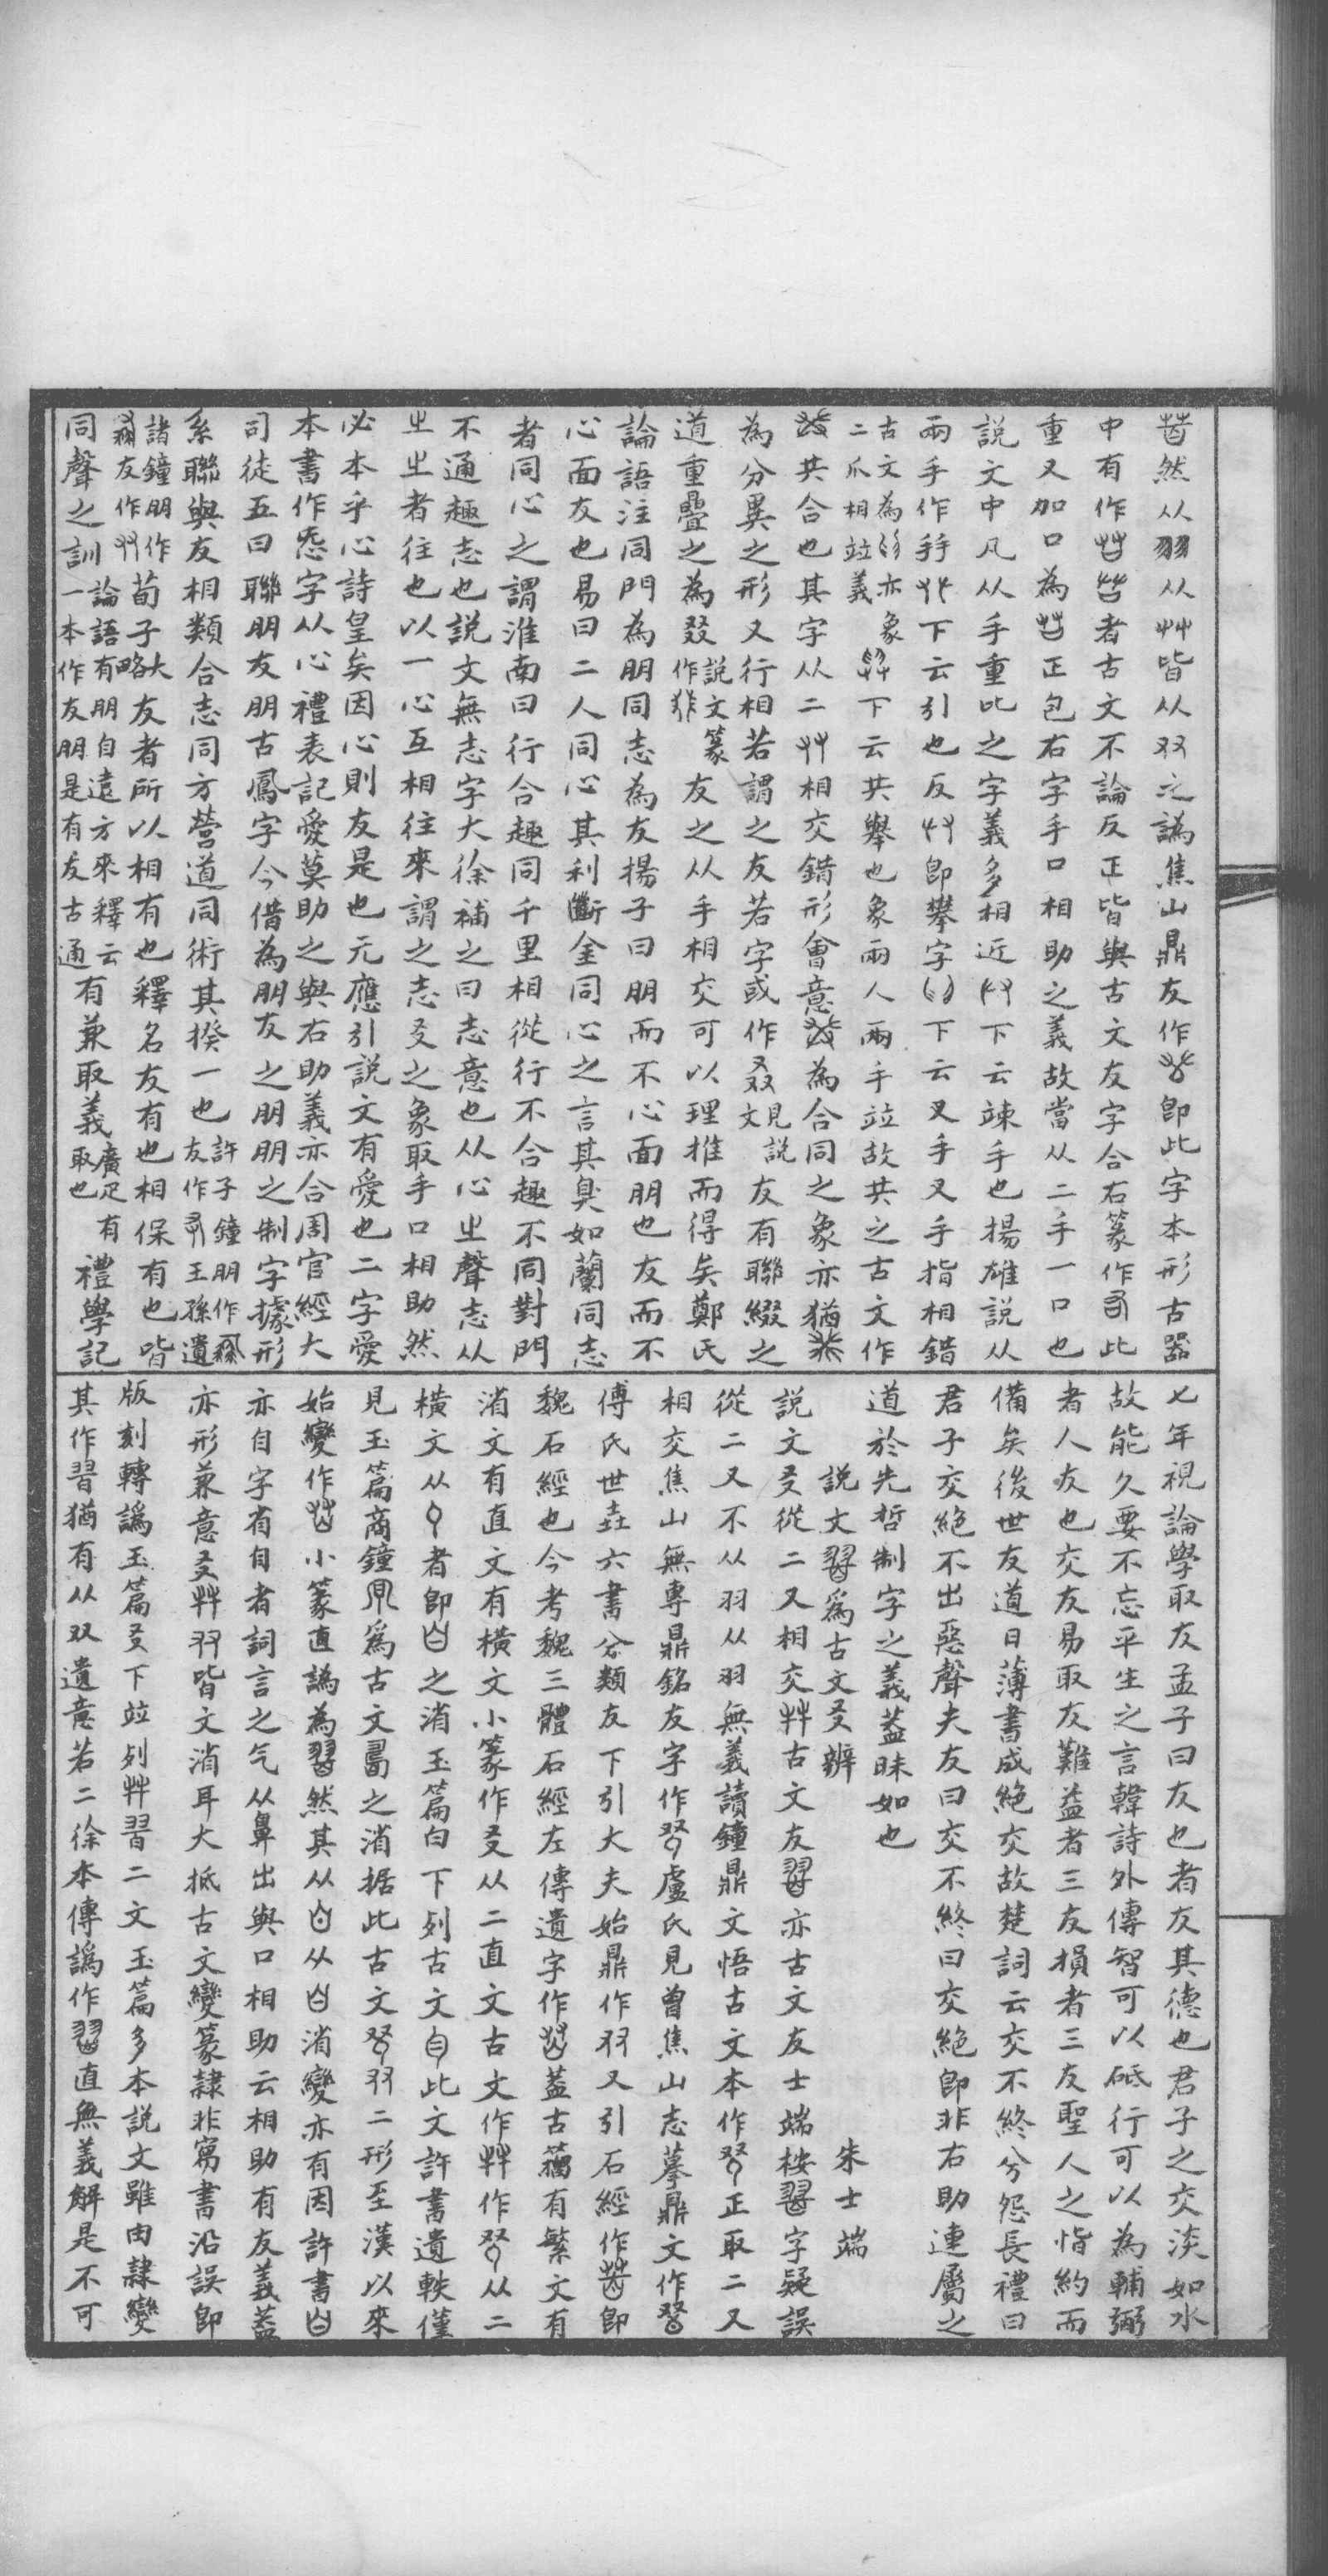 然从羽从艸皆从双之譌焦山鼎友作即此字本形古器
中有作者古文不論反正皆與古文友字合右篆作此
重又加口為正包右字手口相助之義故當从二手一口也
說文中凡从手重比之字義多相近下云竦手也揚雄說从
兩手作下云引也反即攀字下云叉手叉手指相錯
古文為亦象
二爪相竝義
下云共舉也象兩人兩手竝故共之古文作
其合也其字从二艸相交錯形會意為合同之象亦猶
為分異之形又行相若謂之友若字或作叒見說文友有聯綴之
道重疊之為叕說文篆作友之从手相交可以理推而得矣鄭氏
論語注同門為朋同志為友揚子曰朋而不心面朋也友而不
心面友也易曰二人同心其利斷金同心之言其臭如蘭同志
者同心之謂淮南曰行合趣同千里相從行不合趣不同對門
不通趣志也說文無志字大徐補之曰志意也从心㞢聲志从
㞢㞢者往也以一心互相往來謂之志爻之象取手口相助然
必本乎心詩皇矣因心則友是也元應引說文有愛也二字愛
本書作㤅字从心禮表記愛莫助之與右助義亦合周官經大
司徒五曰聯朋友朋古鳳字今借為朋友之朋朋之制字據形
系聯與友相類合志同方營道同術其揆一也許子鐘朋作友作王孫遺
諸鐘朋作友作荀子大略友者所以相有也釋名友有也相保有也皆
同聲之訓論語有朋自遠方來釋云一本作友朋是有友古通有兼取義廣疋有取也禮學記
七年視論學取友孟子曰友也者友其德也君子之交淡如水
故能久要不忘平生之言韓詩外傳智可以砥行可以為輔弼
者人友也交友易取友難益者三友損者三友聖人之恉約而
備矣後世友道日薄書成絕交故楚詞云交不終兮怨長禮曰
君子交絕不出惡聲夫友曰交不終曰交絕即非右助連屬之
道於先哲制字之義蓋昧如也
說文為古文友辨
朱士端
說文友從二又相交古文友亦古文友士端桉字疑誤
從二又不从羽从羽無義讀鐘鼎文悟古文本作正取二又
相交焦山無專鼎銘友字作盧氏見曾焦山志摹鼎文作
傅氏世垚六書分類友下引大夫始鼎作又引石經作即
魏石經也今考魏三體石經左傳遺字作蓋古籒有繁文有
消文有直文有橫文小篆作友从二直文古文作作从二
橫文从者即之消玉篇白下列古文此文許書遺軼僅
見玉篇商鐘鼎為古文之消据此古文二形至漢以來
始變作小篆直譌為然其从从消變亦有因許書
亦自字有自者詞言之气从鼻出與口相助云相助有友義蓋
亦形兼意友皆文消耳大抵古文變篆隸非寫書沿誤即
版刻轉譌玉篇友下竝列二文玉篇多本說文雖由隸變
其作習猶有从双遺意若二徐本傳譌作直無義解是不可